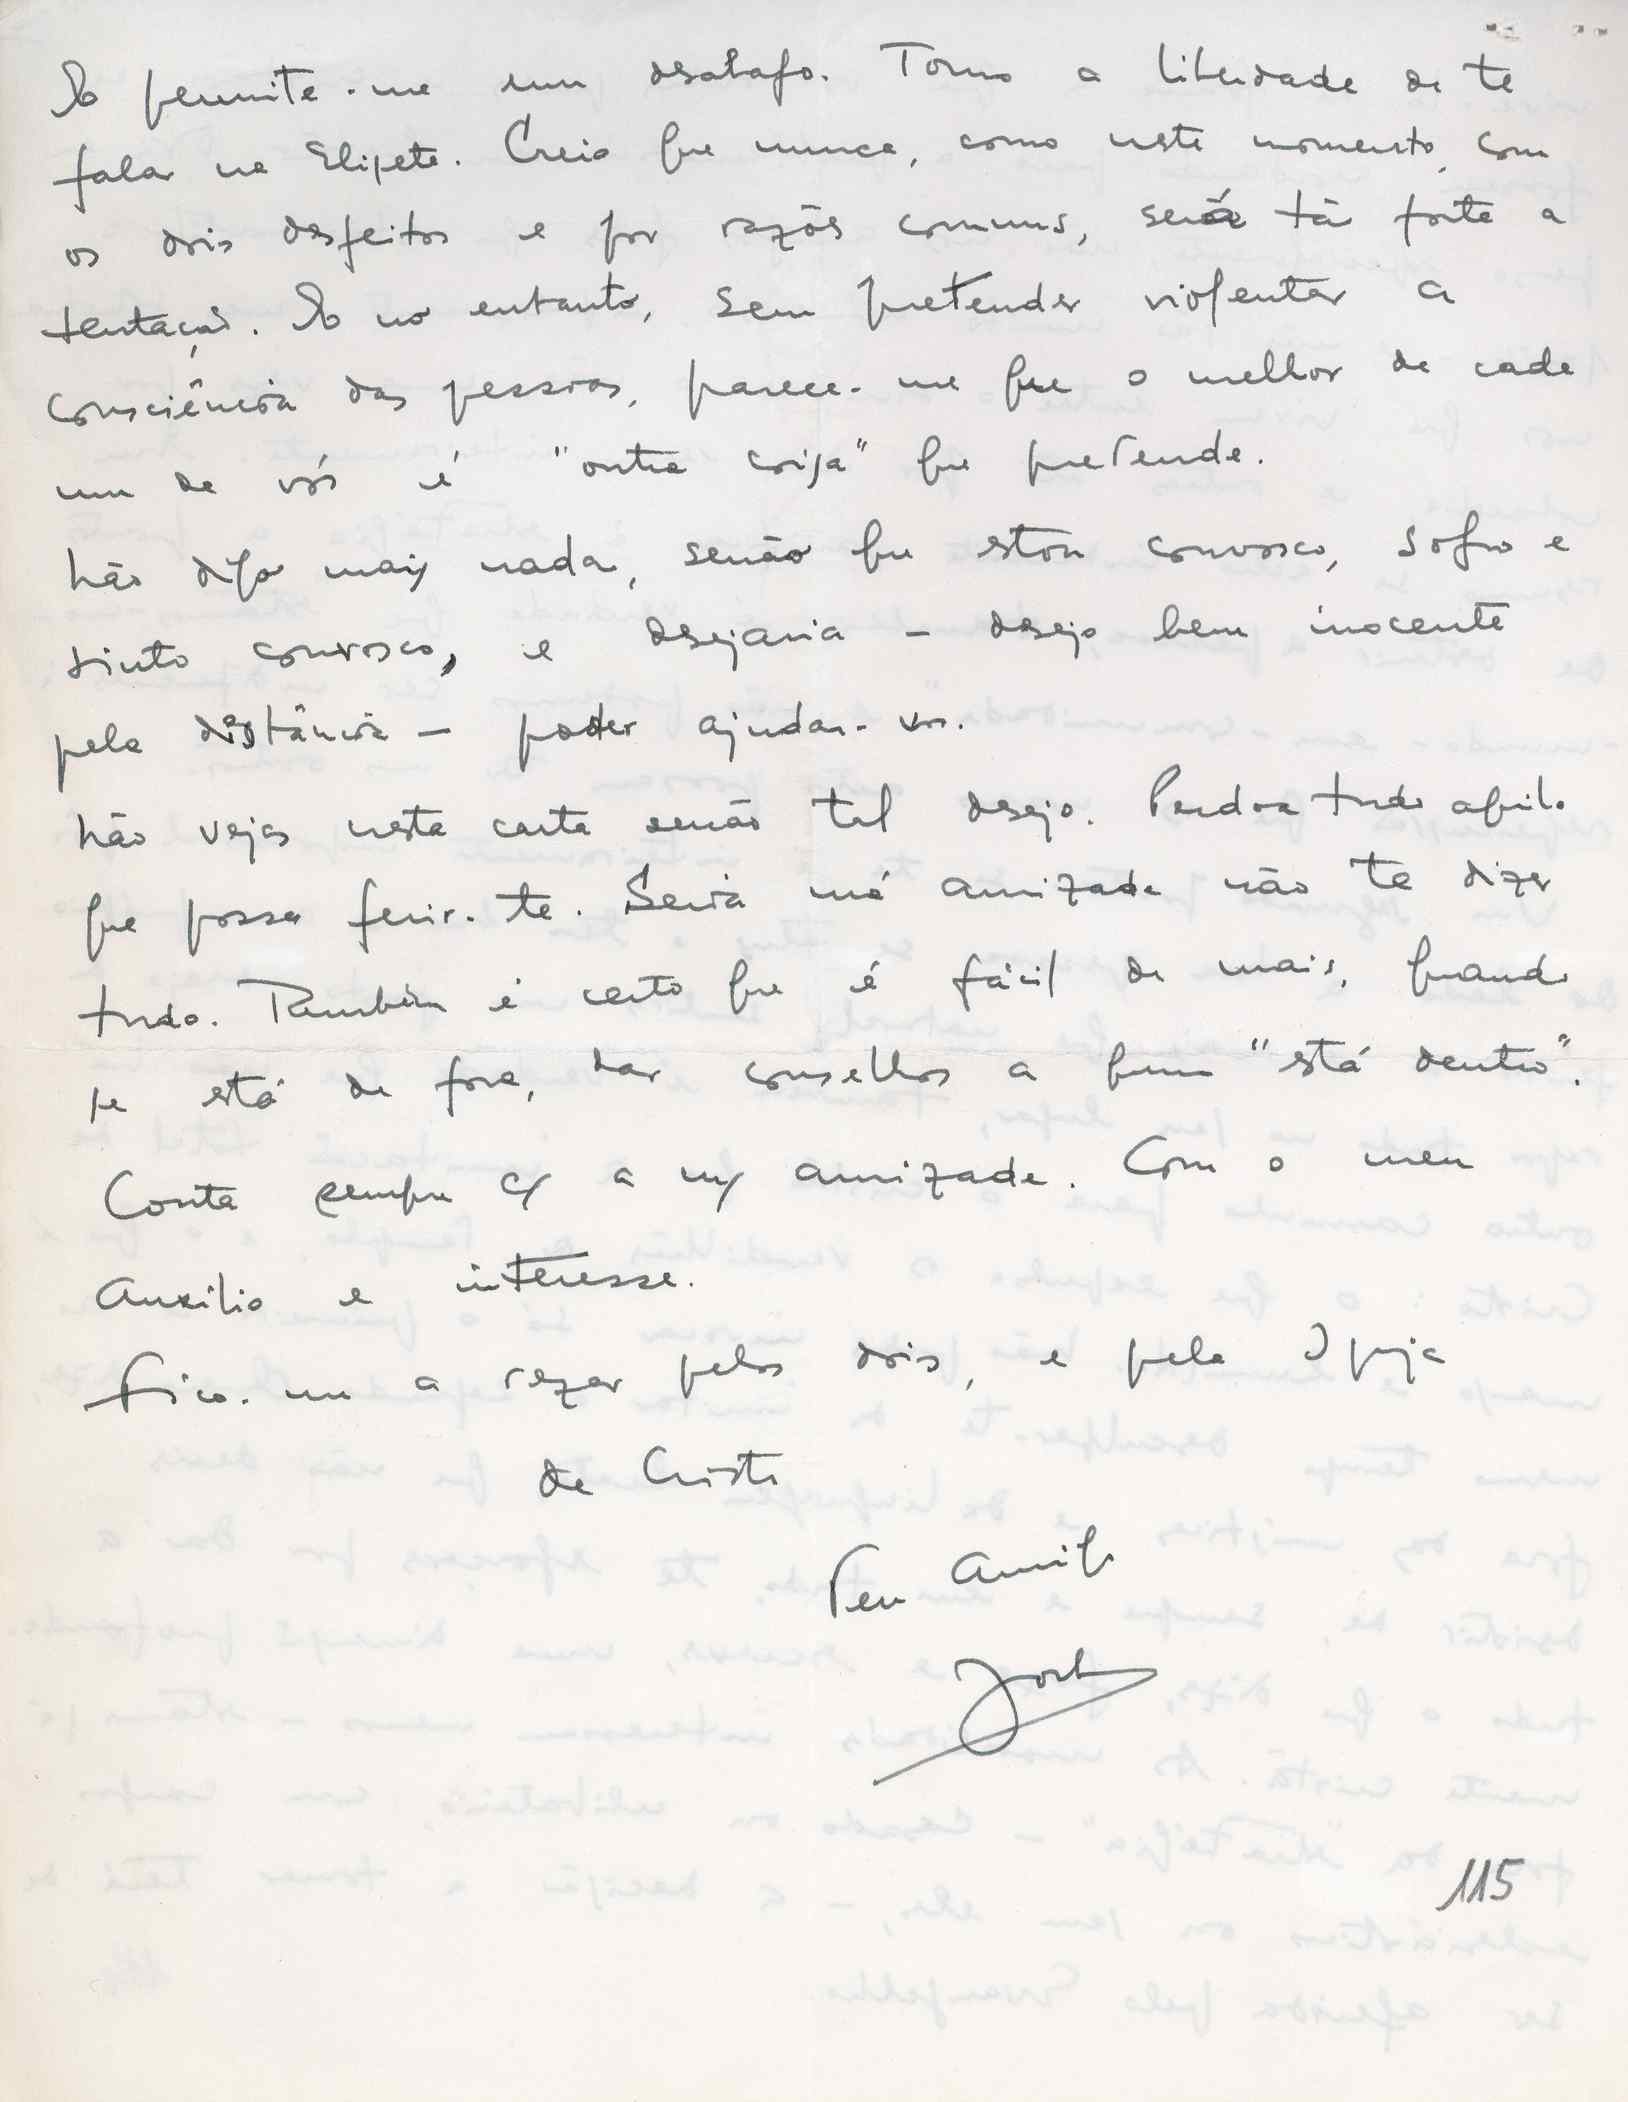 E permite-me um desabafo. Tomo a liberdade de te
falar na Elipete. Creio que nunca, como neste momento, com
os dois desfeitos e por razões comuns, será tão forte a
tentação. E no entanto, sem pretender violentar a
consciência das pessoas, parece-me que o melhor de cada
um de vós é "outra coisa" que pretende.
Não digo mais nada, senão que estou convosco, sofro e
sinto convosco, e desejaria – desejo bem inocente
pela distância – poder ajudar-vos.
Não vejas nesta carta senão tal desejo. Perdoa tudo aquilo
que possa ferir-te. Seria má amizade não te dizer
tudo. Também é certo que é fácil de mais, quando
se está de fora, dar conselhos a quem "está dentro".
Conta sempre c/ a m/ amizade. Com o meu
auxílio e interesse.
Fico-me a rezar pelos dois, e pela Igreja
de Cristo
Teu Amigo
115